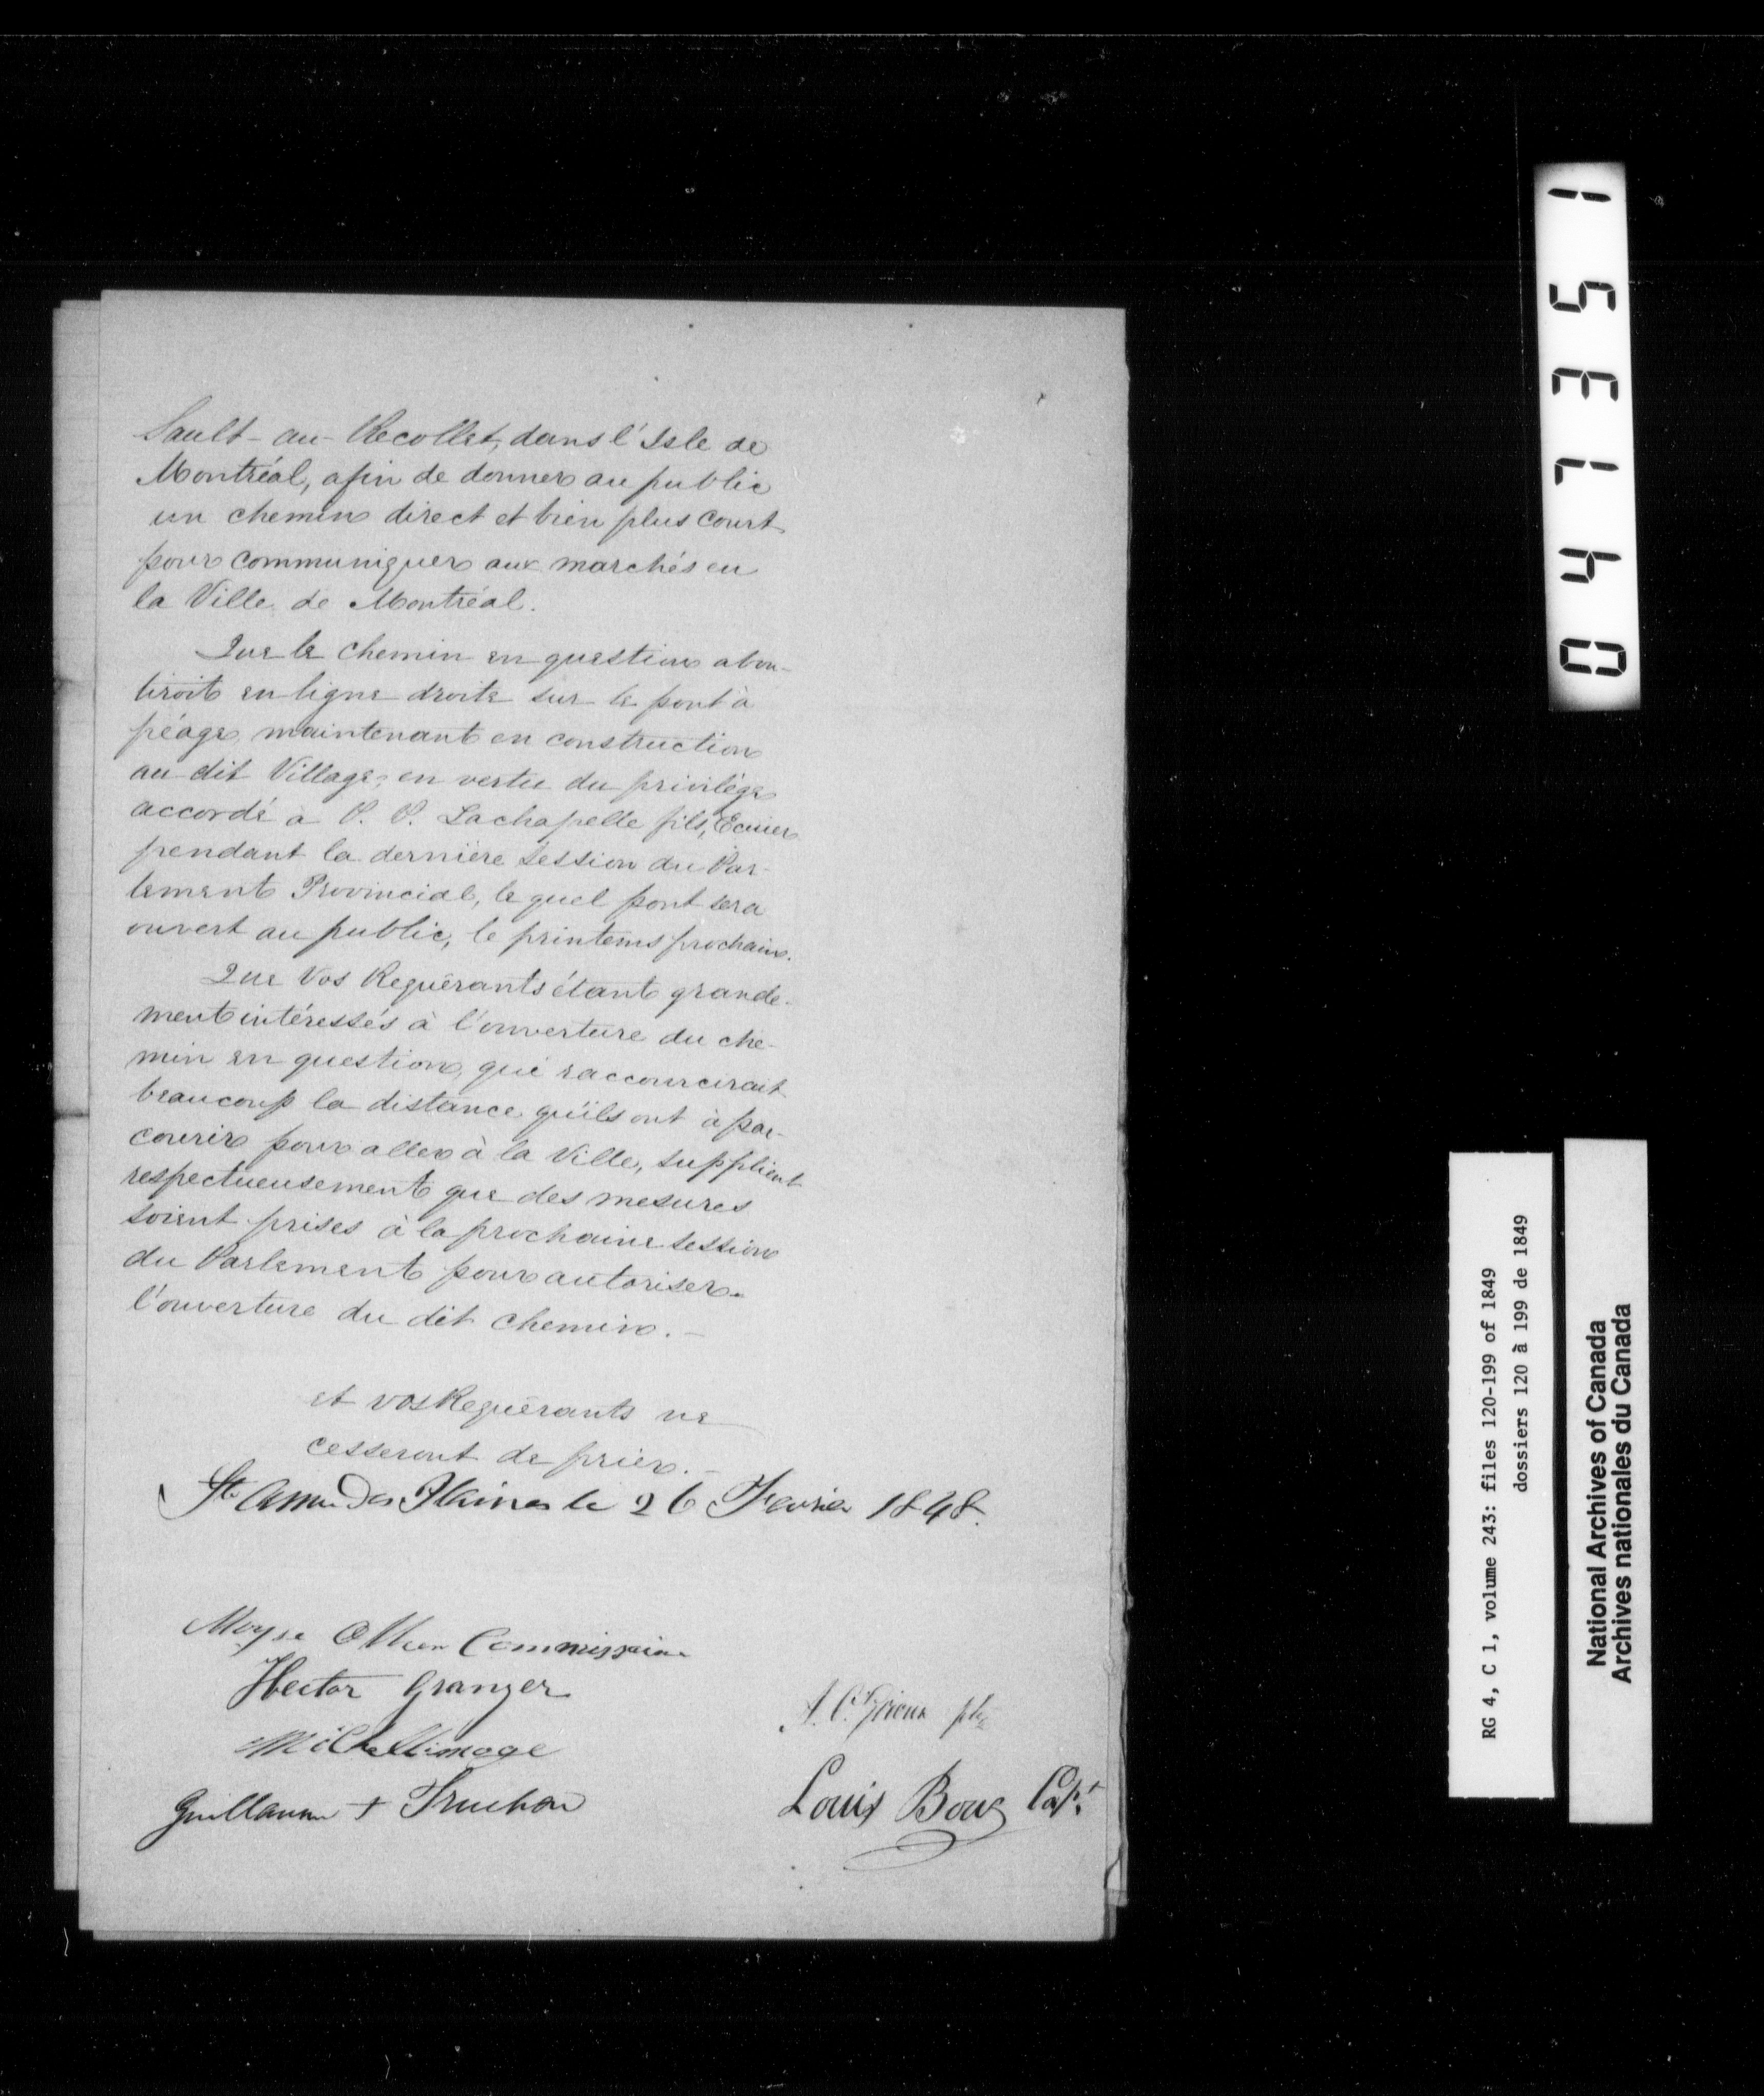 Sault-au-Recollet, dans l'Isle de
Montréal, afin de donner au public
un chemin direct et bien plus court
pour communiquer aux marchés en
la Ville de Montréal.
Que le chemin en question abou-
tiroit en ligne droite sur le pont à
péage maintenant en construction
au dit Village, en vertu du privilége
accordé à P. P. Lachapelle fils, Ecuier
pendant la dernière session du Par-
lement Provincial, le quel pont sera
ouvert au public, le printems prochain.
Que Vos Requérants étant grande-
ment intéressés à l'ouverture du che-
min en question, qui raccourcirait
beaucoup la distance qu'ils ont à par-
courir pour aller à la Ville, supplient
respectueusement que des mesures
soient prises à la prochaine session
du Parlement pour autoriser
l'ouverture du dit chemin.-
et vos Requérants ne
cesseront de prier.-
Ste Anne Des Plaines le 26 Fevrier 1848.
Moyse Commissaire
Hector Granger
Michel Limoge
Guillaume + Truchon
A. C. Giroux ptre
Louis Bouc Capt
047351
RG 4, C 1, volume 243: files 120-199 of 1849
dossiers 120 à 199 de 1849
National Archives of Canada
Archives nationales du Canada